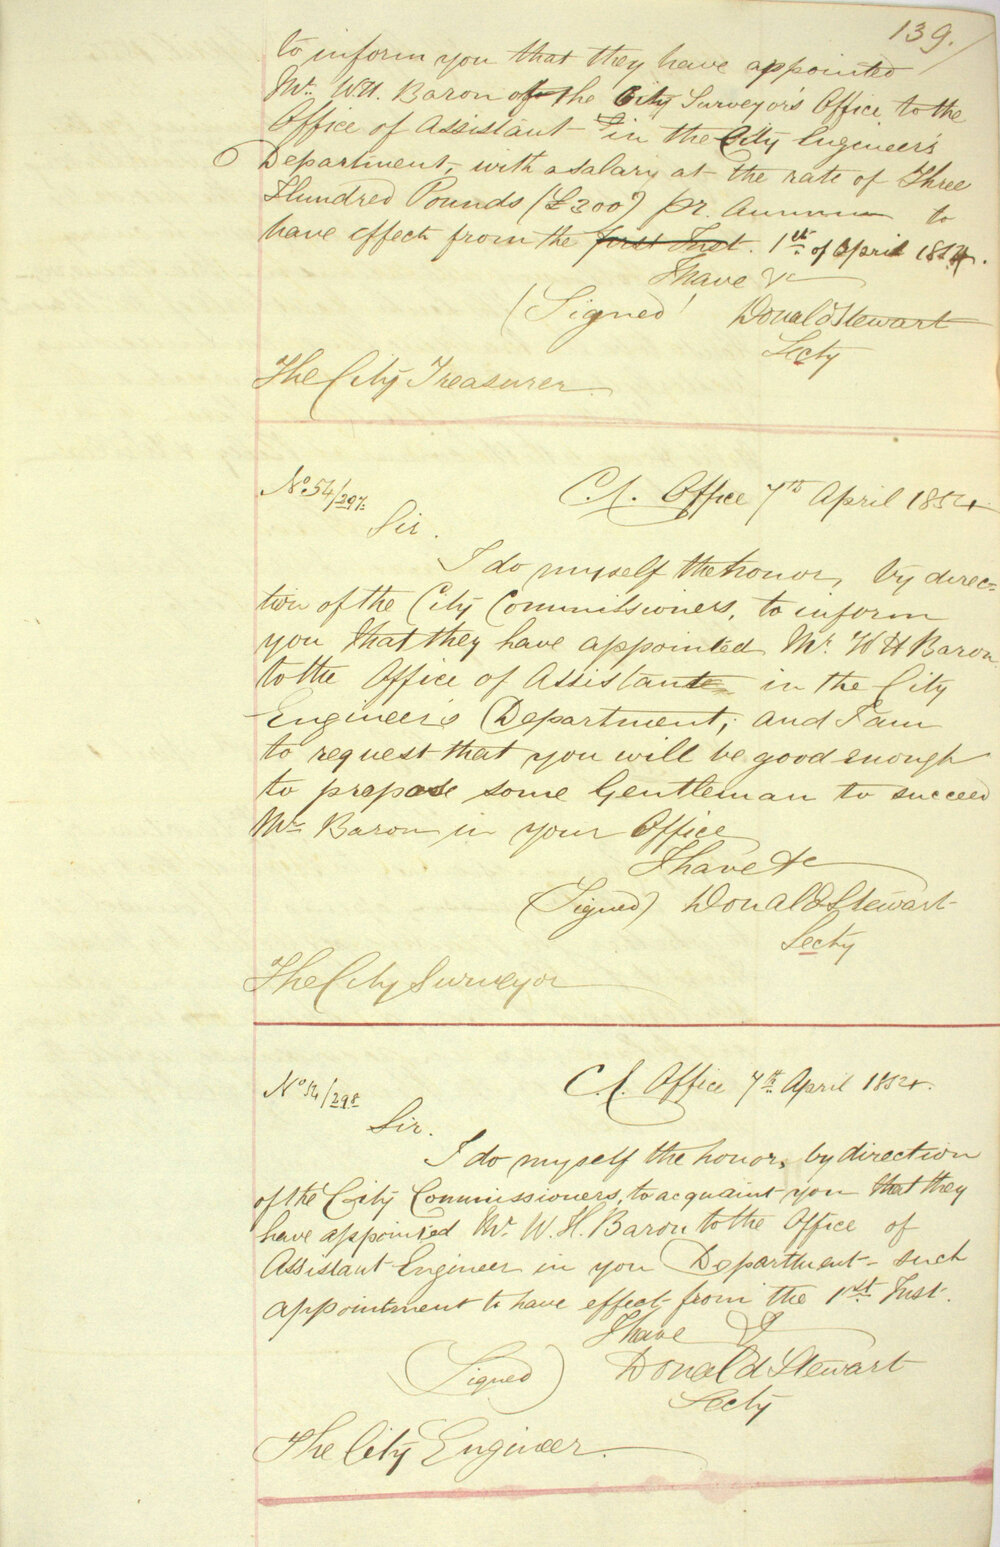 139.
to inform you that they have appointed
Mr. W.H. Baron of the City Surveyor's Office to the
Office of Assistant in the City Engineer's
Department, with a salary at the rate of Three
Hundred Pounds (£300) pr. Annum to
have effect from the first Inst. 1st of April 1854.
I have &c
(Signed) Donald Stewart
Secty
The City Treasurer
No. 54/297. C.C. Office 7th April 1854.
Sir.
I do myself the honor, by direc=
tion of the City Commissioners, to inform
you that they have appointed Mr. W H Baron
to the Office of Assistant in the City
Engineer's Department; and I am
to request that you will be good enough
to propose some Gentleman to succeed
Mr Baron in your Office
I have &c
(Signed) Donald Stewart
Secty
The City Surveyor
No 54/298 C.C. Office 7th April 1854.
Sir.
I do myself the honor, by direction
of the City Commissioners, to acquaint you that they
have appointed Mr. W. H. Baron to the Office of
Assistant Engineer in you Department - such
appointment to have effect from the 1st Inst.
I have &
(Signed) Donald Stewart
Secty
The City Engineer.